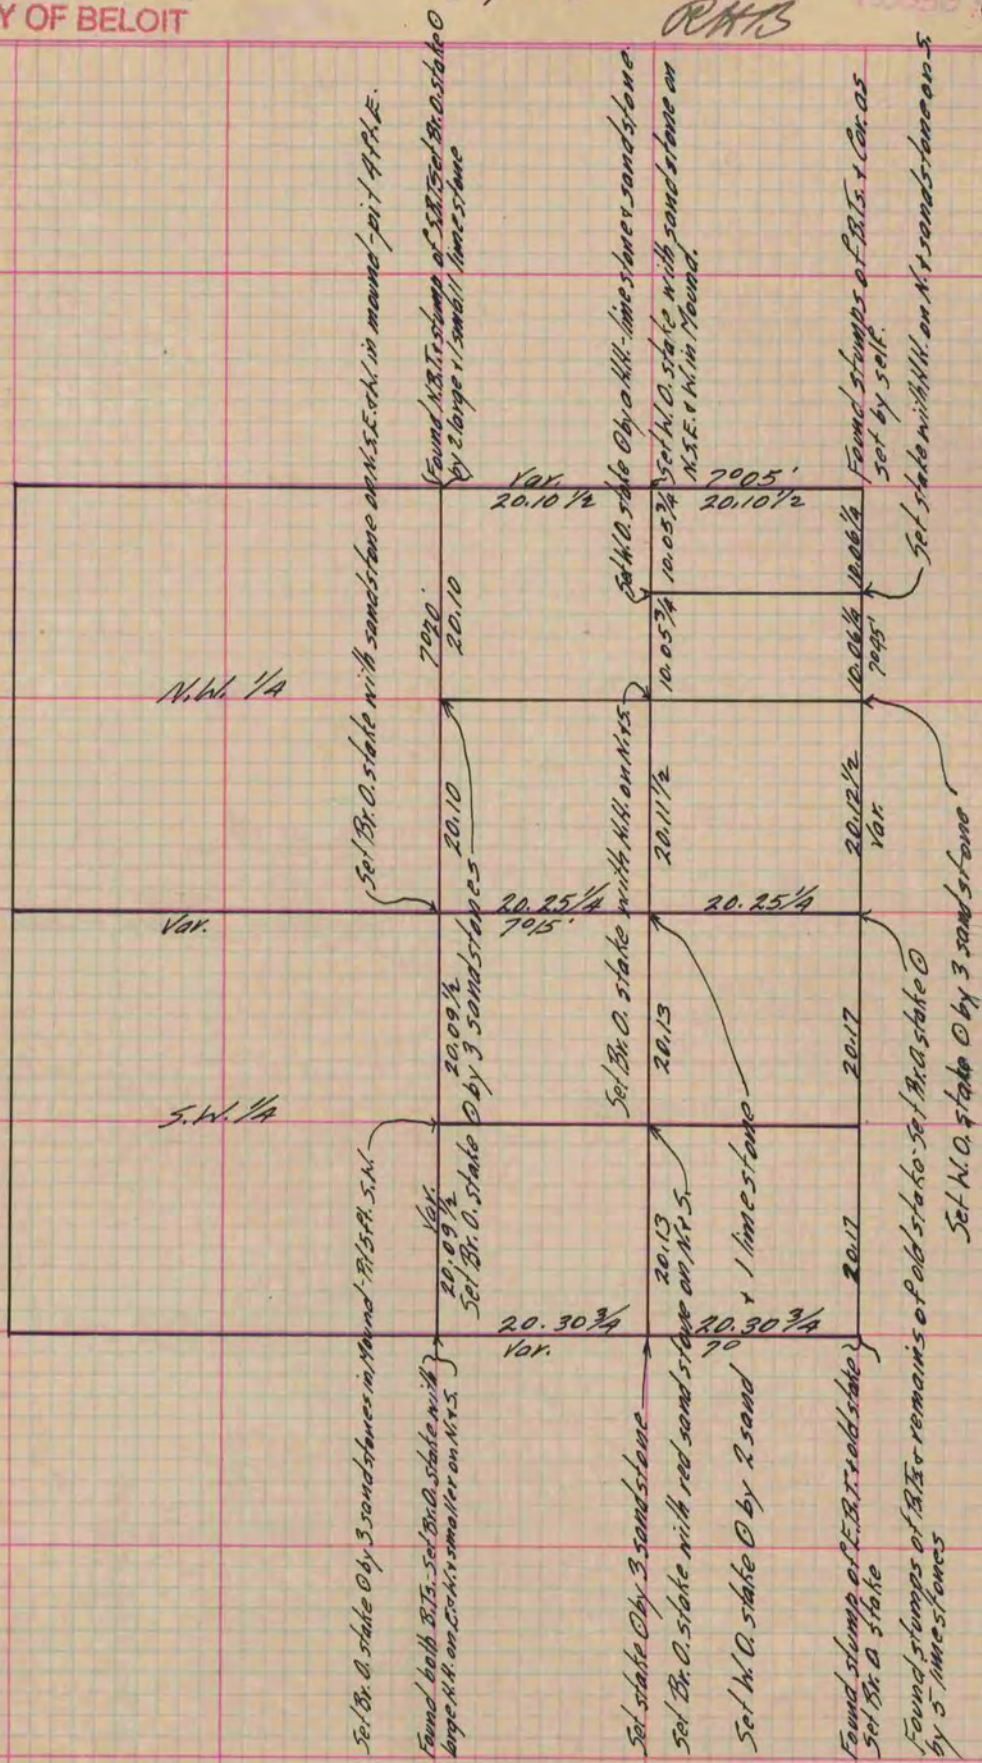 Y OF BELOIT
RHB
Set Br. O. stake with sandstone on N.S.E. & W. in mound-pit 4 ft. E.
Found N.B.T. & stump of S.B.T. Set Br. O. stake O
by 2 large & 1 small limestone
Set W.O. stake O by a H.H.-limestone & sandstone
Set W.O. stake with sandstone on
N.S.E. & W. in Mound.
Found stumps of B.Ts. & Cor. as
set by self.
Set stake with H.H. on N. & sandstone on S.
N.W. 1/4
7°20'
20.10
Var.
20.10 1/2
7°05'
20.10 1/2
10.05 3/4
10.05 3/4
10.06 1/4
10.06 1/4
7°45'
20.10
20.11 1/2
20.12 1/2
Var.
Set Br. O. stake O by 3 sandstones
Set Br. O. stake with H.H. on N. & S.
Var.
20.25 1/4
7°15'
20.25 1/4
S.W. 1/4
20.09 1/2
20.13
20.17
Var.
20.09 1/2
20.13
20.17
20.30 3/4
Var.
20.30 3/4
7°
Set Br. O. stake O by 3 sandstones in Mound-Pit 5 ft. S.W.
Found both B.Ts. Set Br. O. stake with
large H.H. on E. & W. & smaller on N. & S.
Set stake O by 3 sandstone
Set Br. O. stake with red sandstone on N. & S.
Set W.O. stake O by 2 sand & 1 limestone
Found stump of E.B.T. & old stake
Set Br. O. stake
Found stumps of B.Ts. & remains of old stake-Set Br. O. stake O
by 5 limestones
Set W.O. stake O by 3 sandstone